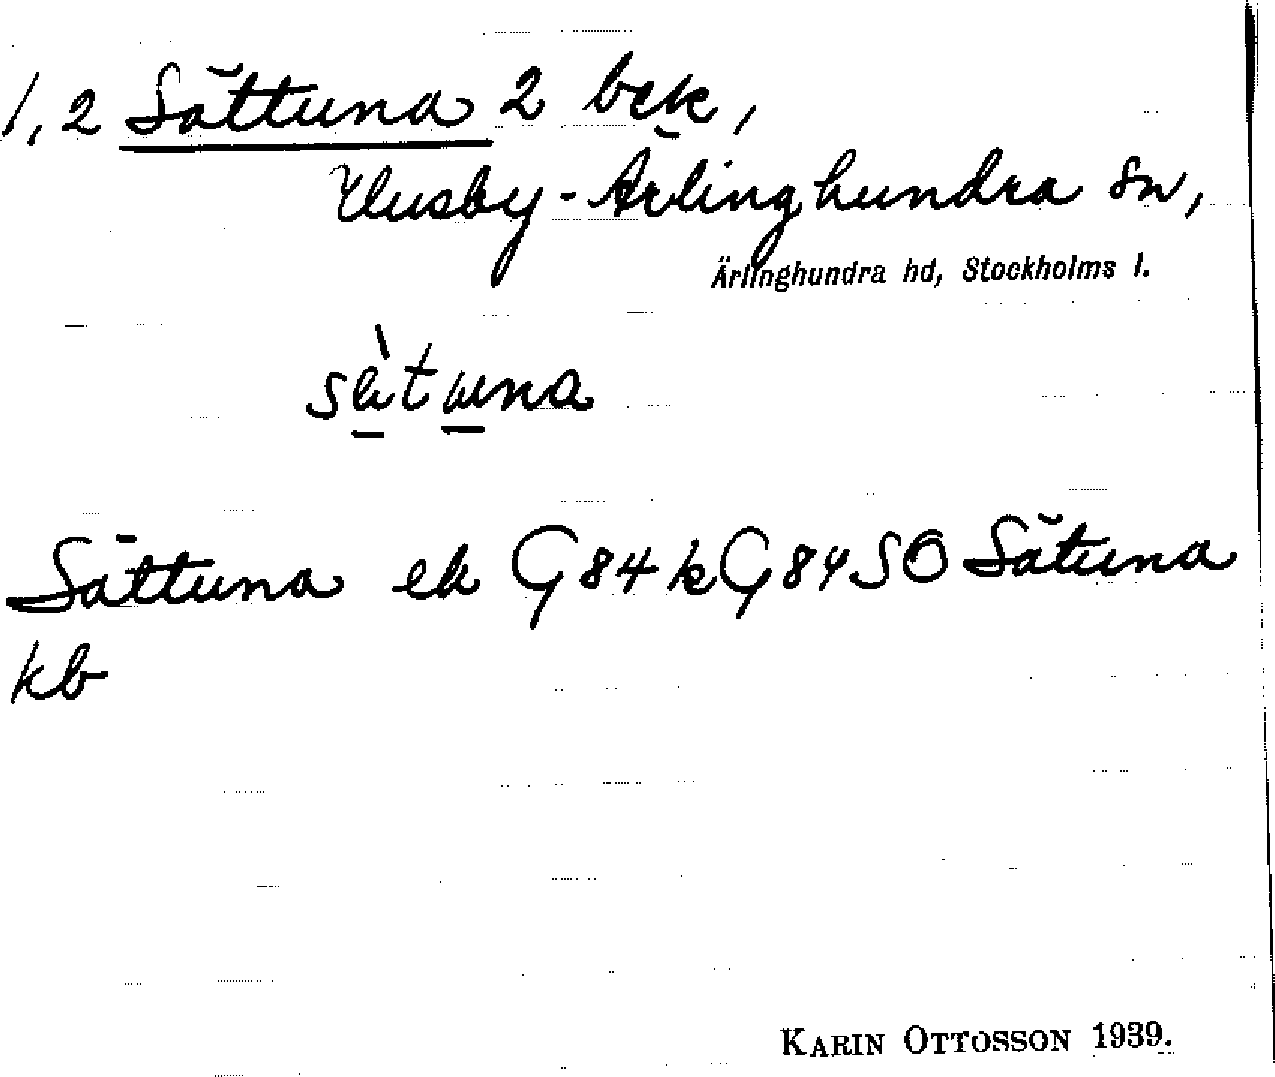 1, 2 Sättuna 2 bek,
Husby-Ärlinghundra sn,
Ärlinghundra hd, Stockholms l.
sä̀tuna
Sättuna ek G84 kG84 SO Sätuna
kb
KARIN OTTOSSON 1939.